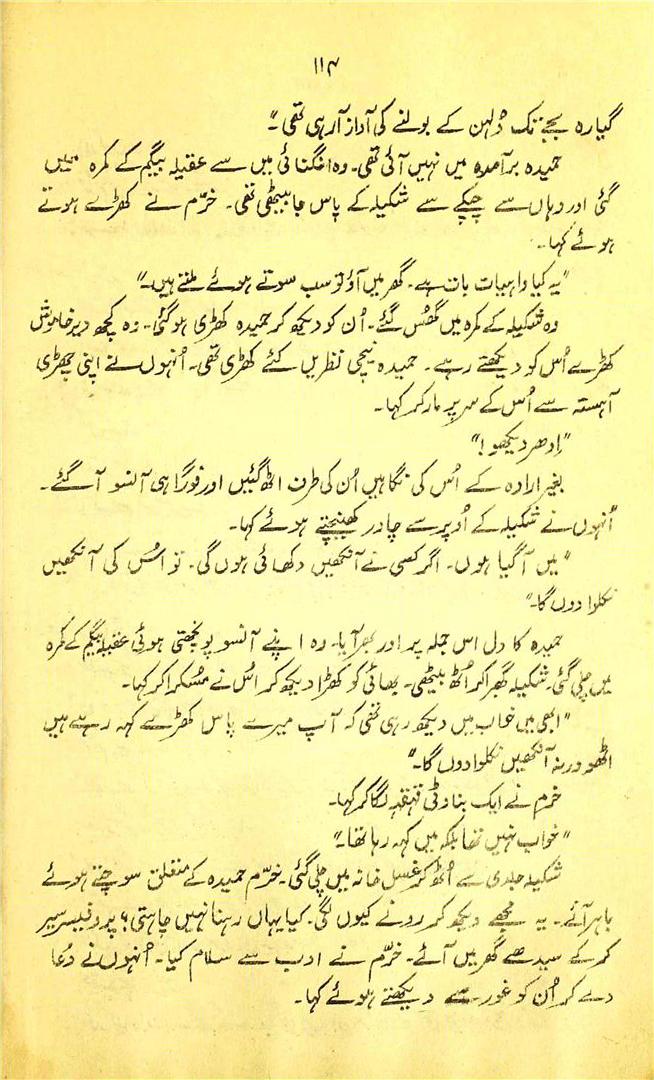 ۱۱۴
گیارہ بجے تک دُلہن کے بولنے کی آواز آرہی تھی ۔"
حمیدہ برآمدہ میں نہیں آئی تھی۔ وہ انگنائی میں سے عقیلہ بیگم کے کمرہ میں
گئی اور وہاں سے چپکے سے شکیلہ کے پاس جا بیٹھی تھی۔ خرّم نے کھڑے ہوتے
ہوئے کہا۔
"یہ کیا واہیات بات ہے۔ گھر میں آؤ تو سب سوتے ہوئے ملتے ہیں۔"
وہ شکیلہ کے کمرہ میں گھُس گئے۔ اُن کو دیکھ کر حمیدہ کھڑی ہوگئی۔ وہ کچھ دیر خاموش
کھڑے اُس کو دیکھتے رہے۔ حمیدہ نیچی نظریں کئے کھڑی تھی۔ اُنہوں نے اپنی چھڑی
آہستہ سے اُس کے سر پر مار کر کہا۔
"اِدھر دیکھو!"
بغیر ارادہ کے اُس کی نگاہیں اُن کی طرف اٹھ گئیں اور فوراً ہی آنسو آگئے۔
اُنہوں نے شکیلہ کے اُوپر سے چادر کھینچتے ہوئے کہا۔
"میں آگیا ہوں۔ اگر کسی نے آنکھیں دکھائی ہوں گی۔ تو اس کی آنکھیں
نکلوا دوں گا۔"
حمیدہ کا دل اس جملہ پر اور بھر آیا۔ وہ اپنے آنسو پونچھتی ہوئی عقیلہ بیگم کے کمرہ
میں چلی گئی۔ شکیلہ گھبرا کر اُٹھ بیٹھی۔ بھائی کو کھڑا دیکھ کر اُس نے مسکرا کر کہا۔
"ابھی میں خواب میں دیکھ رہی تھی کہ آپ میرے پاس کھڑے کہہ رہے ہیں
اٹھو ورنہ آنکھیں نکلوا دوں گا۔"
خرم نے ایک بناوٹی قہقہہ لگا کر کہا۔
"خواب نہیں تھا بلکہ میں کہہ رہا تھا۔"
شکیلہ جلدی سے اُٹھ کر غسل خانہ میں چلی گئی۔ خرّم حمیدہ کے متعلق سوچتے ہوئے
باہر آئے۔ یہ مجھے دیکھ کر رونے کیوں لگی۔ کیا یہاں رہنا نہیں چاہتی؟ پروفیسر سیر
کر کے سیدھے گھر میں آئے۔ خرّم نے ادب سے سلام کیا۔ اُنہوں نے دُعا
دے کر اُن کو غور سے دیکھتے ہوئے کہا۔